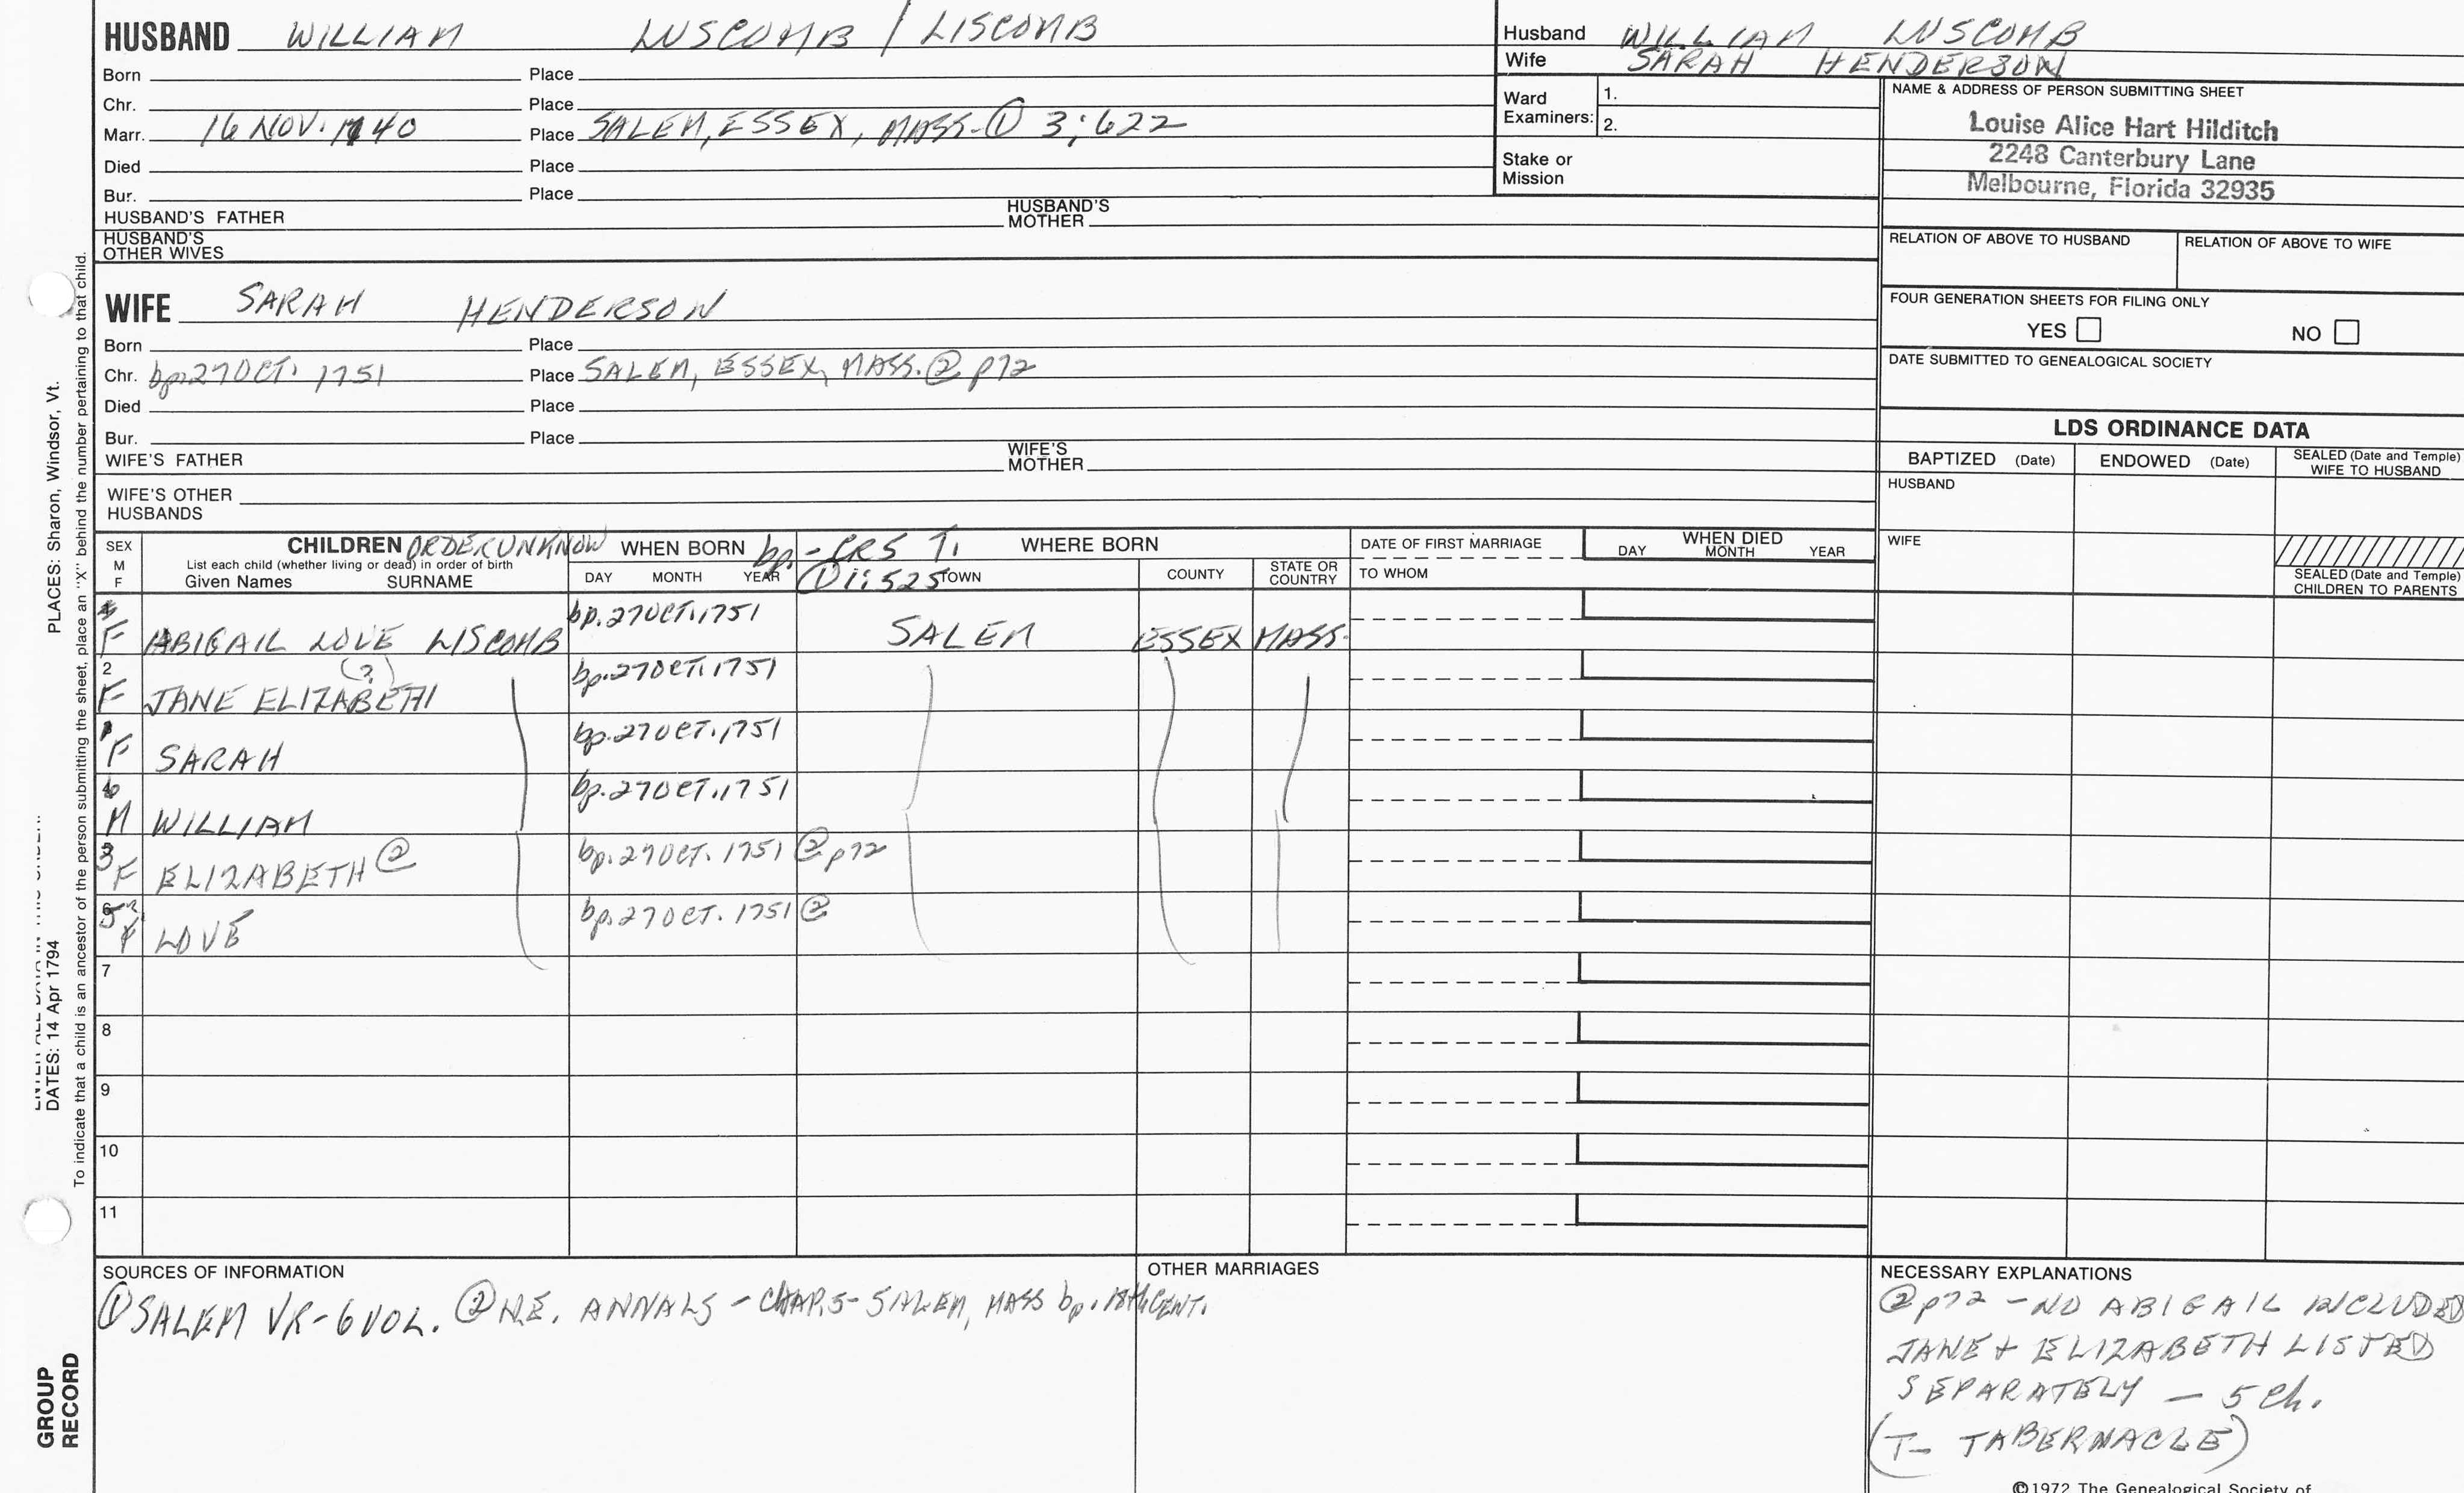 HUSBAND WILLIAM LUSCOMB / LISCOMB
Born Place
Chr. Place
Marr. 16 NOV. 1740 Place SALEM, ESSEX, MASS. ① 3:622
Died Place
Bur. Place
HUSBAND'S FATHER HUSBAND'S MOTHER
HUSBAND'S OTHER WIVES
Husband WILLIAM LUSCOMB
Wife SARAH HENDERSON
Ward Examiners: 1.
2.
Stake or Mission
NAME & ADDRESS OF PERSON SUBMITTING SHEET
Louise Alice Hart Hilditch
2248 Canterbury Lane
Melbourne, Florida 32935
RELATION OF ABOVE TO HUSBAND RELATION OF ABOVE TO WIFE
FOUR GENERATION SHEETS FOR FILING ONLY
YES NO
DATE SUBMITTED TO GENEALOGICAL SOCIETY
WIFE SARAH HENDERSON
Born Place
Chr. bp. 27 OCT. 1751 Place SALEM, ESSEX, MASS. ② p72
Died Place
Bur. Place
WIFE'S FATHER WIFE'S MOTHER
WIFE'S OTHER HUSBANDS
LDS ORDINANCE DATA
BAPTIZED (Date) ENDOWED (Date) SEALED (Date and Temple) WIFE TO HUSBAND
HUSBAND
WIFE
SEALED (Date and Temple) CHILDREN TO PARENTS
SEX M F
CHILDREN ORDER UNKNOW
List each child (whether living or dead) in order of birth
Given Names SURNAME
WHEN BORN bp. - CR5 T.
DAY MONTH YEAR ① 1:525
WHERE BORN
TOWN COUNTY STATE OR COUNTRY
DATE OF FIRST MARRIAGE
TO WHOM
WHEN DIED
DAY MONTH YEAR
F ABIGAIL LOVE LISCOMB bp. 27 OCT. 1751 SALEM ESSEX MASS.
(?)
2 F JANE ELIZABETH bp. 27 OCT. 1751
F SARAH bp. 27 OCT. 1751
4 M WILLIAM bp. 27 OCT. 1751
3 F ELIZABETH ② bp. 27 OCT. 1751 ② p72
5 F LOVE bp. 27 OCT. 1751 ②
7
8
9
10
11
SOURCES OF INFORMATION
① SALEM VR - 6 VOL. ② N.E. ANNALS - CHAP. 5 - SALEM, MASS bp. 18th CENT.
OTHER MARRIAGES
NECESSARY EXPLANATIONS
② p72 - NO ABIGAIL INCLUDED
JANE + ELIZABETH LISTED
SEPARATELY - 5 Ch.
(T - TABERNACLE)
©1972 The Genealogical Society of
PLACES: Sharon, Windsor, Vt.
DATES: 14 Apr 1794
To indicate that a child is an ancestor of the person submitting the sheet, place an "X" behind the number pertaining to that child.
GROUP
RECORD